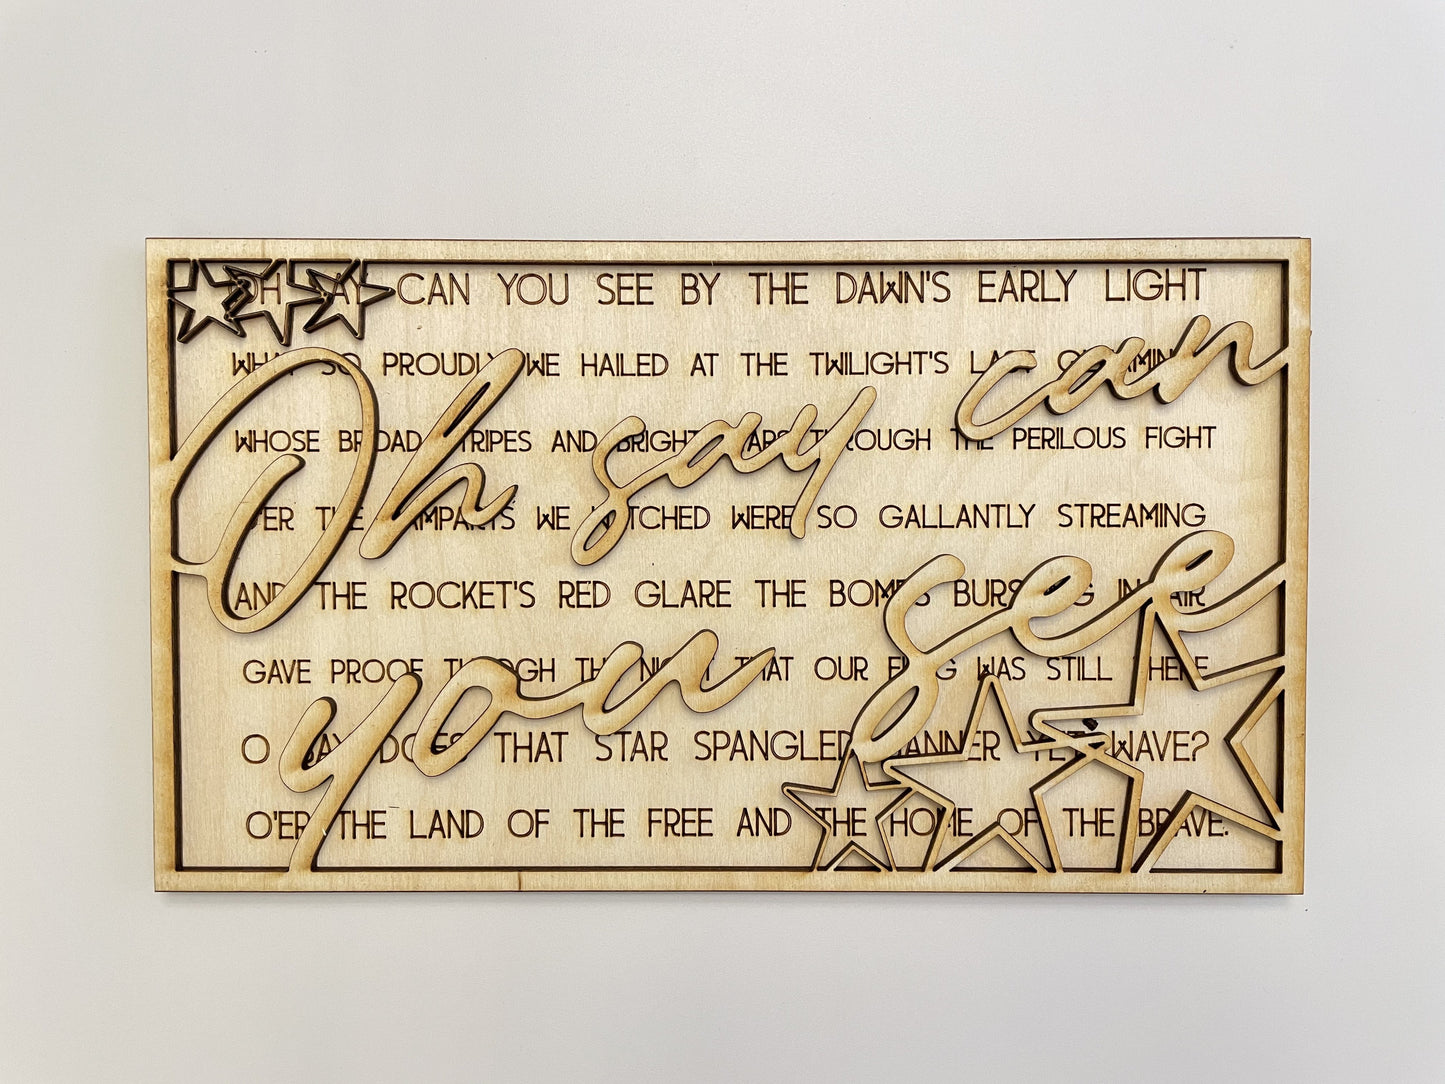 OH SAY CAN YOU SEE BY THE DAWN'S EARLY LIGHT
WHAT SO PROUDLY WE HAILED AT THE TWILIGHT'S LAST GLEAMING
WHOSE BROAD STRIPES AND BRIGHT STARS THROUGH THE PERILOUS FIGHT
O'ER THE RAMPARTS WE WATCHED WERE SO GALLANTLY STREAMING
AND THE ROCKET'S RED GLARE THE BOMBS BURSTING IN AIR
GAVE PROOF THROUGH THE NIGHT THAT OUR FLAG WAS STILL THERE
O SAY DOES THAT STAR SPANGLED BANNER YET WAVE?
O'ER THE LAND OF THE FREE AND THE HOME OF THE BRAVE.
Oh say can
you see